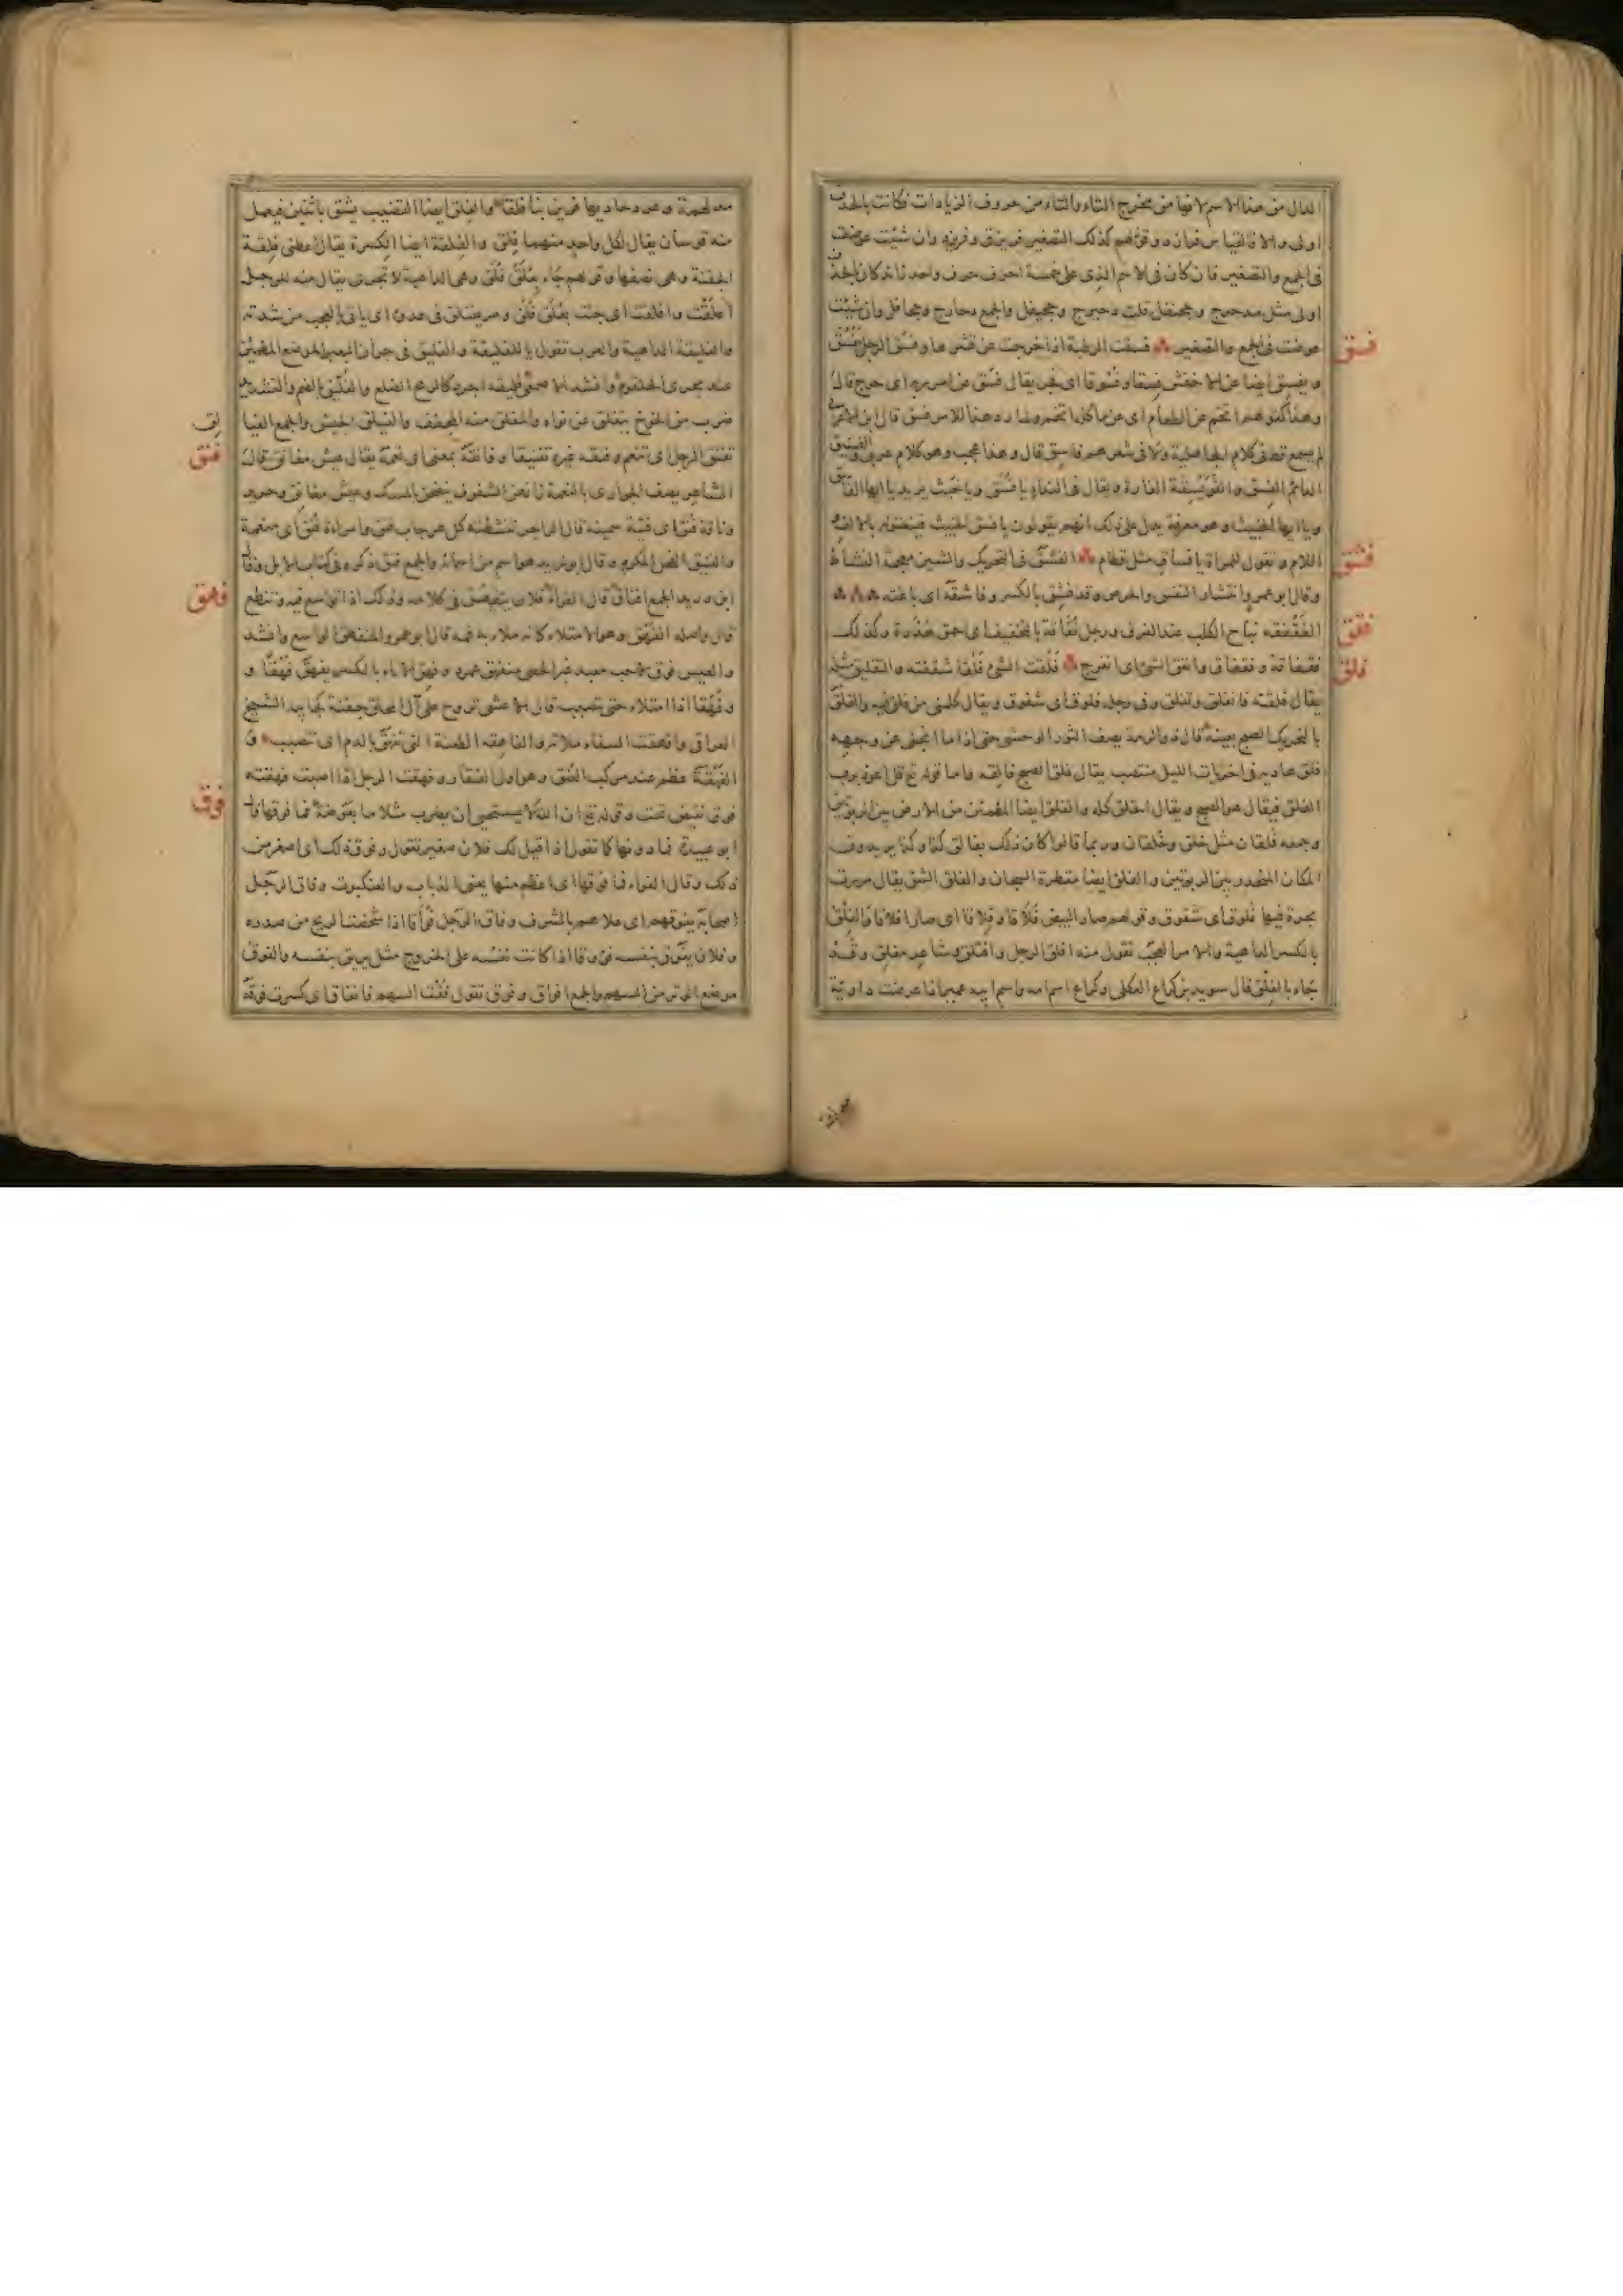 الدال من هذا الاسم لانها من مخرج التاء والتاء من حروف الزيادات فكانت بالحذف
اولى والا فالقياس فرازد وقولهم كذلك التصغير فريزق وفريزد وان شئت عوضت
فى الجمع والتصغير فان كان فى الاسم الذى على خمسة احرف حرف واحد زائد كان بالحذف
اولى مثل مدحرج وجحنفل قلت دحيرج وجحيفل والجمع دحارج وجحافل وان شئت
عوضت فى الجمع والتصغير فسقت الرطبة اذا خرجت عن قشرها وفسق الرجل يفسق
فسق
ويفسق ايضا عن الاخفش فسقا وفسوقا اى فجر يقال فسق عن امر ربه اى خرج قال
وهذا كقولهم اتخم عن الطعام اى عن ماكله اتخم ولما رد هذا الامر فسق قال ابن الاعرابى
لم يسمع قط فى كلام الجاهلية ولا فى شعرهم فاسق قال وهذا عجب وهو كلام عربى والفسيق
الدائم الفسق والفويسقة الفارة ويقال فى النداء يا فسق ويا خبث يريد يا ايها الفاسق
ويا ايها الخبيث وهو معرفة يدل على ذلك انهم يقولون يا فسق الخبيث فينعتونه بالالف
و اللام وتقول للمراة يا فساق مثل قطام الفشق فى التحريك والشين معجمة النشاط
فشق
وقال ابو عمرو انتشار النفس والحرص وقد فشق بالكسر وفاشقه اى باغته
الفقفقه نباح الكلب عند الفرق ورجل فقاقة بالتخفيف اى احمق هذرة وكذلك
فقق
فقفاقة وفقفاق وانفق الشئ اى انفرج فلقت الشئ فلقا شققته والتفليق مثله
فلق
يقال فلقته فانفلق وتفلق وفى رجله فلوق اى شقوق ويقال كلمنى من فلق فيه والفلق
بالتحريك الصبح بعينه قال ذو الرمة يصف الثور الوحشى حتى اذا ما انجلى عن وجهه
فلق هاديه فى اخريات الليل منتصب يقال فلق الصبح فالقه واما قوله تع قل اعوذ برب
الفلق فيقال هو الصبح ويقال الخلق كله والفلق ايضا المطمئن من الارض بين الربوتين
وجمعه فلقان مثل خلق وخلقان وربما قالوا كان ذلك بفالق كذا وكذا يريدون
المكان المنحدر بين الربوتين والفلق ايضا مقطرة السجان والفلق الشق يقال مررت
بحرة فيها فلوق اى شقوق وقولهم صار البيض فلاقا وفلاقا اى صار افلاقا والفلق
بالكسر الداهية والامر العجب تقول منه افلق الرجل وافتلق وشاعر مفلق وقد
جاء بالفلق قال سويد بن كراع العكلى وكراع اسم امه واسم ابيه عمير اذا عرضت داوية
مدلهمة وغرد حاديها فرين بنا فلقا والفلق ايضا القضيب يشق باثنين فيعمل
منه قوسان يقال لكل واحد منهما فلق والفلقة ايضا الكسرة يقال اعطنى فلقة
الجفنة وهى نصفها وقولهم جاء بعلق فلق وهى الداهية لا تجرى يقال منه للرجل
اعلقت وافلقت اى جئت بعلق فلق ومر يفتلق فى عدوه اى ياتى بالعجب من شدته
والفليقة الداهية والعرب تقول يا للفليقة والفليق فى جران البعير الموضع المطمئن
عند مجرى الحلقوم وانشد الاصمعى فليقه اجرد كالرمح الضلع والفليق بالضم والتشديد
ضرب من الخوخ يتفلق عن نواه والمفلق منه المجفف والفيلق الجيش والجمع الفيا
لق
تفنق الرجل اى تنعم وفنقه غيره تفنيقا وفانقه بمعنى اى نعمه يقال عيش مفانق قال
فنق
الشاعر يصف الجوارى بالنعمة زانهن الشفوف ينضحن بالمسك وعيش مفانق وحرير
وناقة فنق اى فتية سمينة قال الراجز تنشطته كل هرجاب فنق وامراة فنق اى منعمة
والفنيق الفحل المكرم وقال ابو زيد هو اسم من اسمائه والجمع فنق ذكره فى كتاب الابل وقال
ابن دريد الجمع افناق قال الفراء فلان يتفيهق فى كلامه وذلك اذا توسع فيه وتنطع
فهق
قال واصله الفهق وهو الامتلاء كانه ملا به فمه قال ابو عمرو المنفهق الواسع وانشد
والعيس فوق لاحب معبد غبر الحصى منفهق عمرد وفهق الاناء بالكسر يفهق فهقا و
وفهقا اذا امتلاء حتى يتصبب قال الاعشى تروح على آل المحلق جفنة كجابية الشيخ
العراقى وافهقت السقاء ملاته والفاهقه الطعنة التى تفهق بالدم اى تتصبب و
الفهقة عظم عند مركب العنق وهو اول الفقار وفهقت الرجل اذا اصبت فهقته
فوق نقيض تحت وقوله تع ان الله لا يستحيى ان يضرب مثلا ما بعوضة فما فوقها قال
فوق
ابو عبيدة فما دونها كما تقول اذا قيل لك فلان صغير تقول وفوق ذلك اى اصغر من
ذلك وقال الفراء فما فوقها اى اعظم منها يعنى الذباب والعنكبوت وفاق الرجل
اصحابه يفوقهم اى علاهم بالشرف وفاق الرجل فواقا اذا شخصت الريح من صدره
وفلان يفوق بنفسه فووقا اذا كانت نفسه على الخروج مثل يريق بنفسه والفوق
موضع الوتر من السهم والجمع افواق وفوق تقول فقت السهم فانفاق اى كسرت فوقه